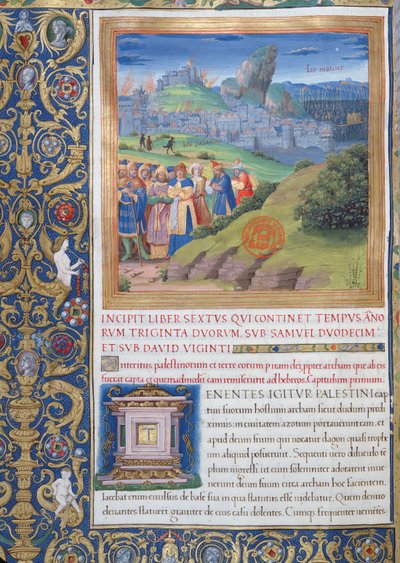 INCIPIT LIBER SEXTVS QVI CONTINET TEMPVS ANNO
RVM TRIGINTA DVORVM, SVB SAMVEL DVODECIM
ET SVB DAVID VIGINTI
Interitus palestinorum et terre eorum per iram dei, ppter archam que ab eis
fuerat capta et quemadmodum eam remiserunt ad hebreos. Capitulum primum.
TENENTES IGITVR PALESTINI cap
tam suorum hostium archam sicut dudum pred
ximus, in ciuitatem azotum portauerunt eam, et
apud deum suum qui uocatur dagon quasi trophe
um aliquod posuerunt. Sequenti uero diluculo te
plum ingressi ut eum solemniter adorarent inue
nerunt deum suum circa archam hoc facientem
Iacebat enim euulsus de base sua in qua statutus esse uidebatur. Quem denuo
eleuantes statuerunt, grauiter de eius casu dolentes. Cumq; frequenter uenientes